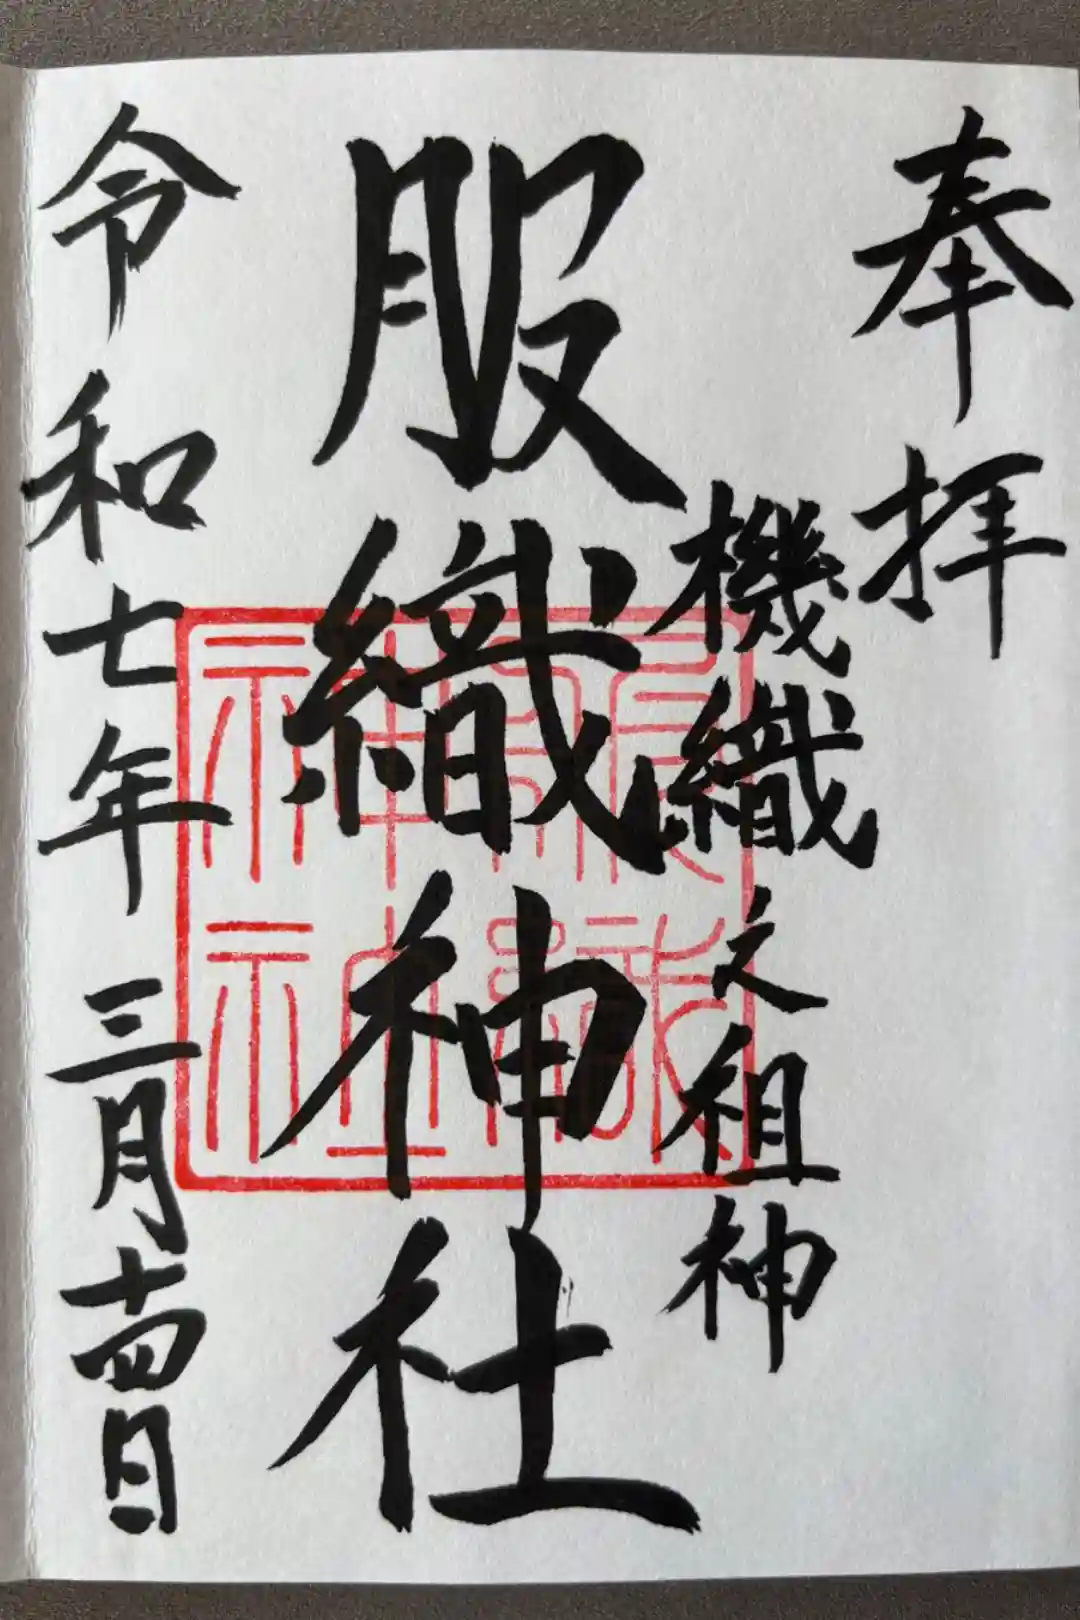 奉拝
機織之祖神
服織神社
令和七年三月十四日
服織神社